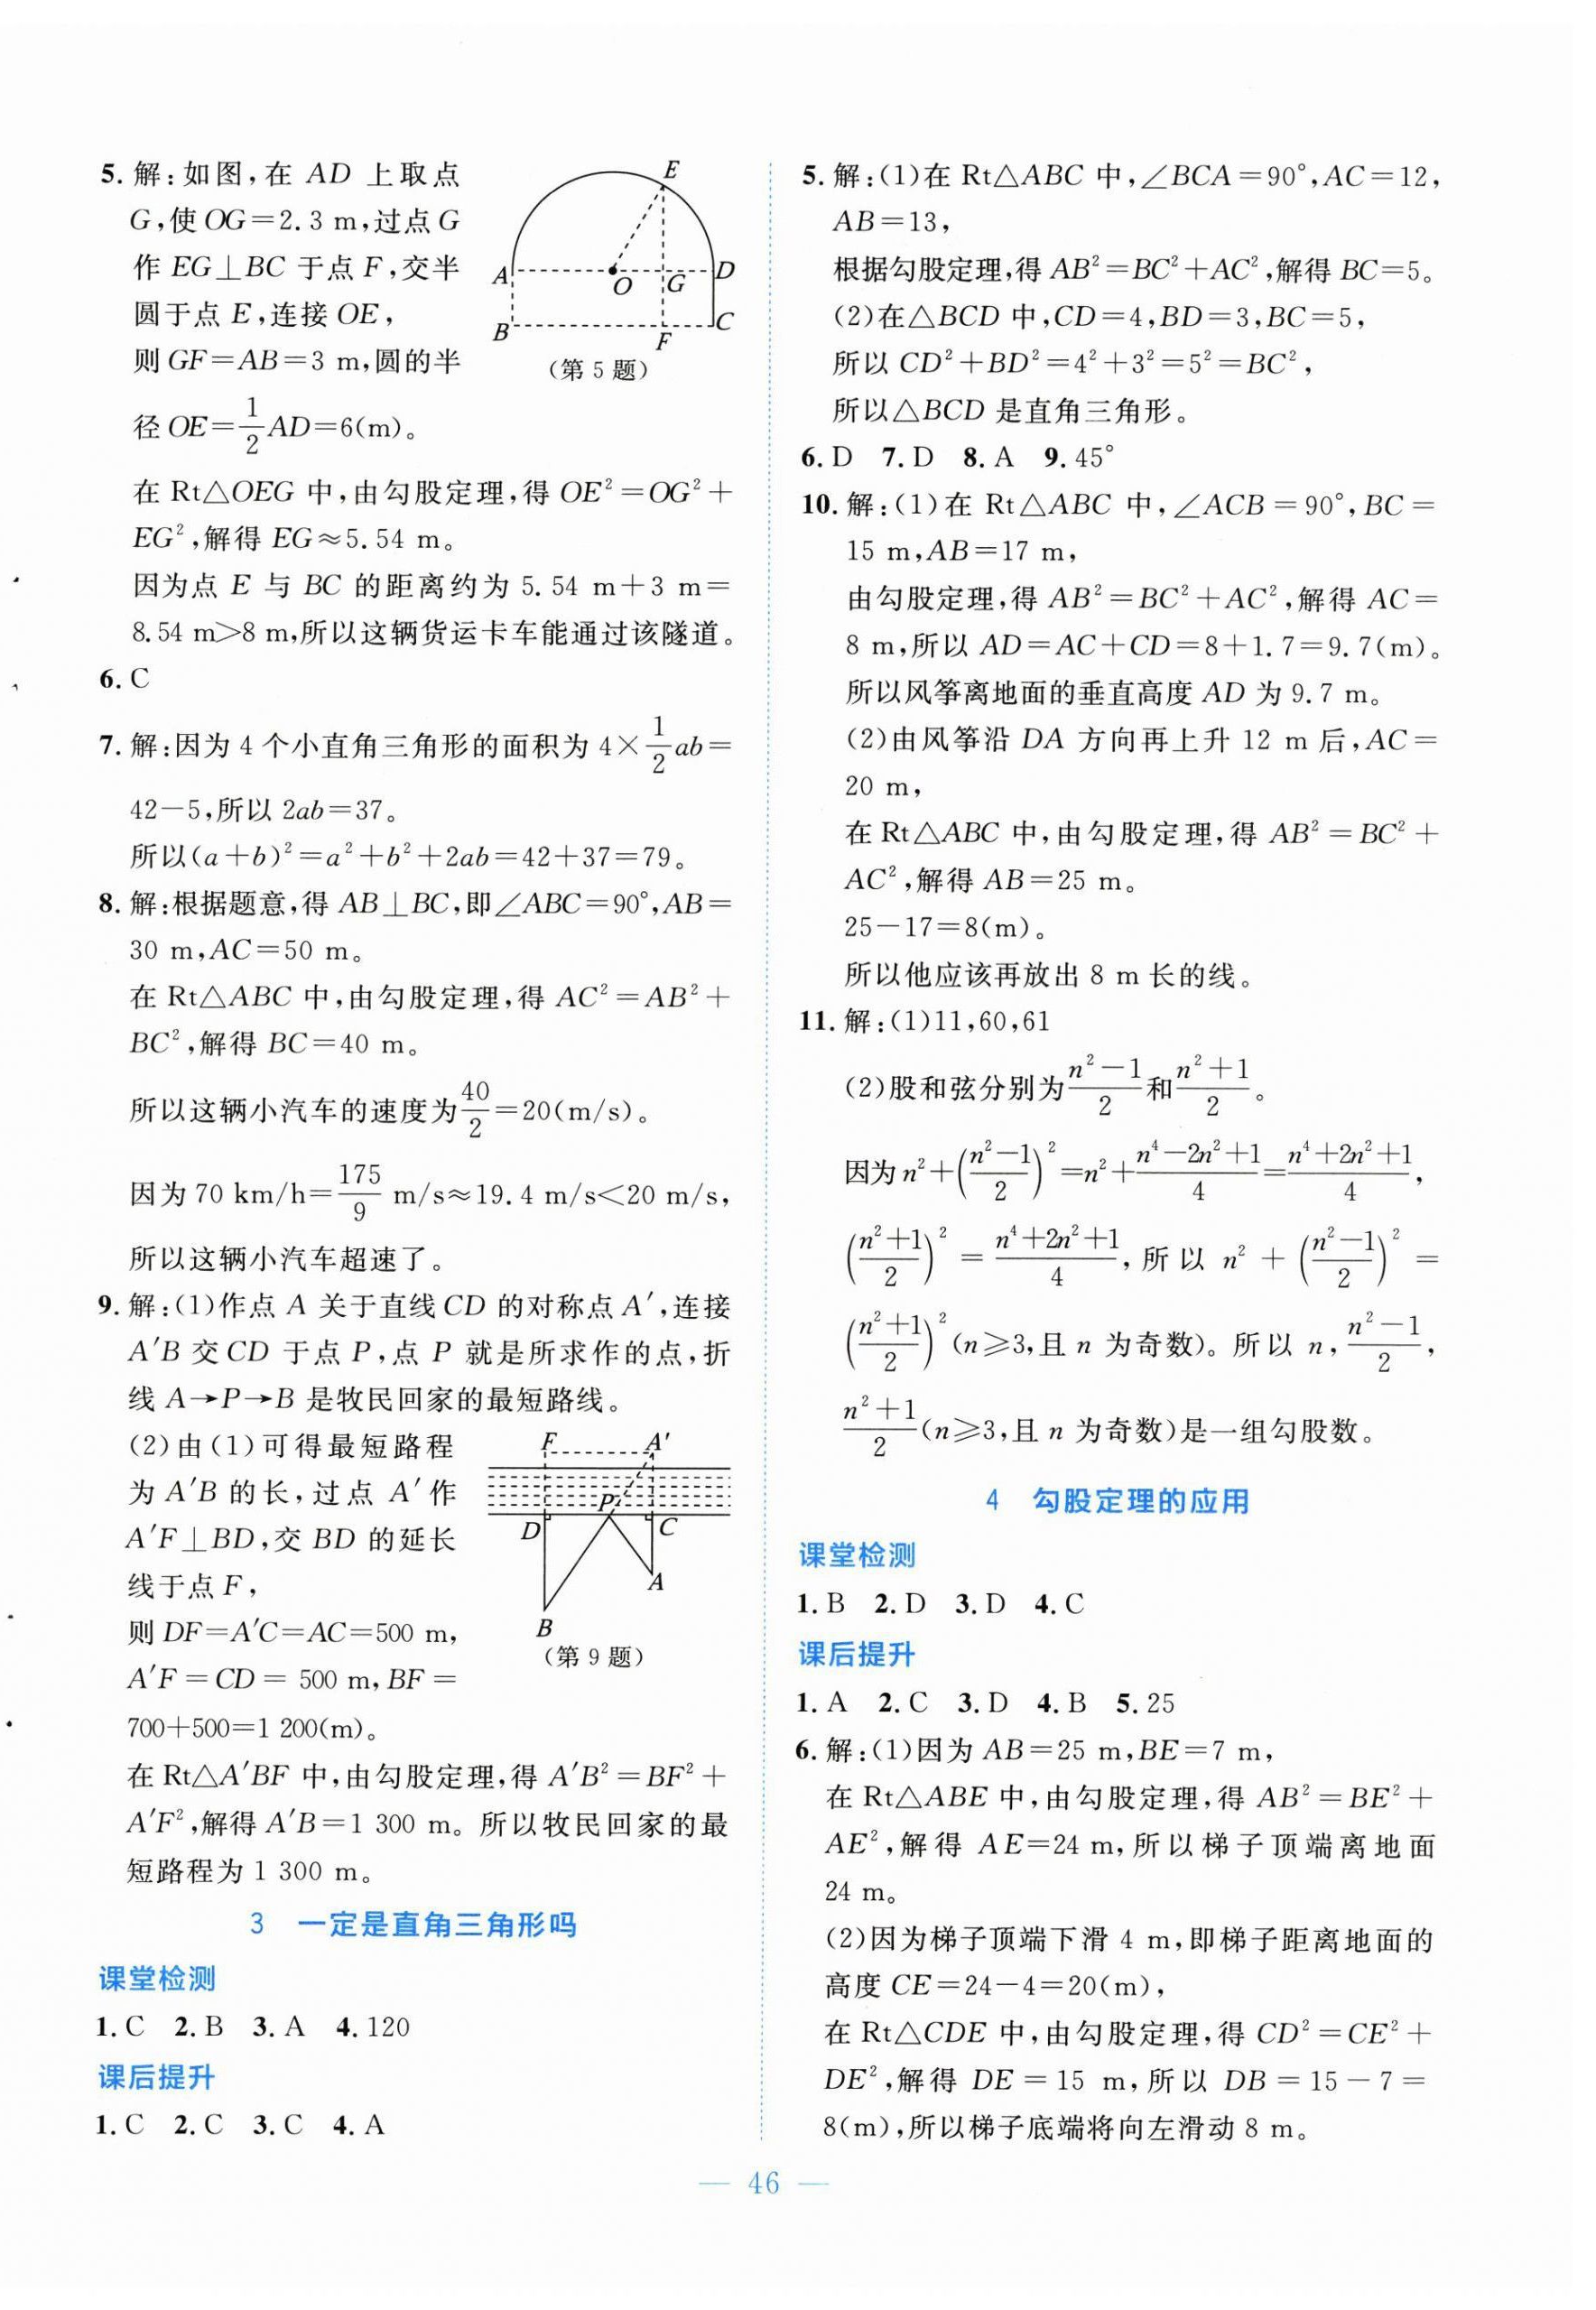 5. 解:如图,在 AD 上取点
G,使 OG=2.3 m,过点 G
作 EG⊥BC 于点 F,交半
圆于点 E,连接 OE,
则 GF=AB=3 m,圆的半
径 OE=1/2 AD=6(m)。
E
A
O
G
D
B
F
C
(第 5 题)
在 Rt△OEG 中,由勾股定理,得 OE²=OG²+
EG²,解得 EG≈5.54 m。
因为点 E 与 BC 的距离约为 5.54 m+3 m=
8.54 m>8 m,所以这辆货运卡车能通过该隧道。
6. C
7. 解:因为 4 个小直角三角形的面积为 4×1/2 ab=
42-5,所以 2ab=37。
所以(a+b)²=a²+b²+2ab=42+37=79。
8. 解:根据题意,得 AB⊥BC,即∠ABC=90°,AB=
30 m,AC=50 m。
在 Rt△ABC 中,由勾股定理,得 AC²=AB²+
BC²,解得 BC=40 m。
所以这辆小汽车的速度为40/2=20(m/s)。
因为 70 km/h=175/9 m/s≈19.4 m/s<20 m/s,
所以这辆小汽车超速了。
9. 解:(1)作点 A 关于直线 CD 的对称点 A′,连接
A′B 交 CD 于点 P,点 P 就是所求作的点,折
线 A→P→B 是牧民回家的最短路线。
(2)由(1)可得最短路程
为 A′B 的长,过点 A′作
A′F⊥BD,交 BD 的延长
线于点 F,
则 DF=A′C=AC=500 m,
A′F=CD=500 m,BF=
700+500=1 200(m)。
F
A′
P
D
C
A
B
(第 9 题)
在 Rt△A′BF 中,由勾股定理,得 A′B²=BF²+
A′F²,解得 A′B=1 300 m。所以牧民回家的最
短路程为 1 300 m。
3 一定是直角三角形吗
课堂检测
1. C 2. B 3. A 4. 120
课后提升
1. C 2. C 3. C 4. A
5. 解:(1)在 Rt△ABC 中,∠BCA=90°,AC=12,
AB=13,
根据勾股定理,得 AB²=BC²+AC²,解得 BC=5。
(2)在△BCD 中,CD=4,BD=3,BC=5,
所以 CD²+BD²=4²+3²=5²=BC²,
所以△BCD 是直角三角形。
6. D 7. D 8. A 9. 45°
10. 解:(1)在 Rt△ABC 中,∠ACB=90°,BC=
15 m,AB=17 m,
由勾股定理,得 AB²=BC²+AC²,解得 AC=
8 m,所以 AD=AC+CD=8+1.7=9.7(m)。
所以风筝离地面的垂直高度 AD 为 9.7 m。
(2)由风筝沿 DA 方向再上升 12 m 后,AC=
20 m,
在 Rt△ABC 中,由勾股定理,得 AB²=BC²+
AC²,解得 AB=25 m。
25-17=8(m)。
所以他应该再放出 8 m 长的线。
11. 解:(1)11,60,61
(2)股和弦分别为(n²-1)/2和(n²+1)/2。
因为 n²+((n²-1)/2)²=n²+(n⁴-2n²+1)/4=(n⁴+2n²+1)/4,
((n²+1)/2)²=(n⁴+2n²+1)/4,所以 n²+((n²-1)/2)²=
((n²+1)/2)²(n≥3,且 n 为奇数)。所以 n,(n²-1)/2,
(n²+1)/2(n≥3,且 n 为奇数)是一组勾股数。
4 勾股定理的应用
课堂检测
1. B 2. D 3. D 4. C
课后提升
1. A 2. C 3. D 4. B 5. 25
6. 解:(1)因为 AB=25 m,BE=7 m,
在 Rt△ABE 中,由勾股定理,得 AB²=BE²+
AE²,解得 AE=24 m,所以梯子顶端离地面
24 m。
(2)因为梯子顶端下滑 4 m,即梯子距离地面的
高度 CE=24-4=20(m),
在 Rt△CDE 中,由勾股定理,得 CD²=CE²+
DE²,解得 DE=15 m,所以 DB=15-7=
8(m),所以梯子底端将向左滑动 8 m。
— 46 —